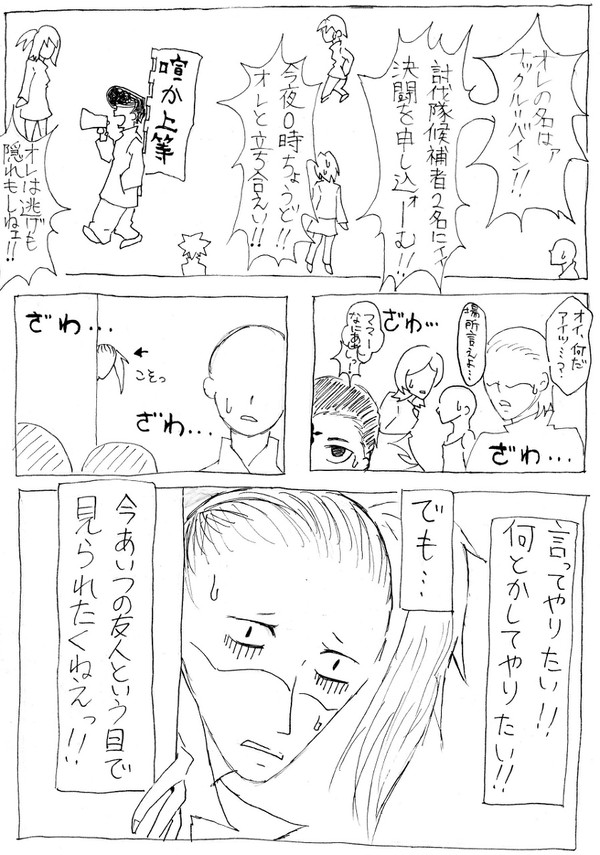 オレの名はァ
ナックル＝バイン!!
討伐隊候補者2名にィ
決闘を申し込ォーむ!!
今夜0時ちょうど!!
オレと立ち合えい!!
喧か上等
オレは逃げも
隠れもしねェ!!
オイ、何だ
アイツ…?
場所言えよ…
ざわ…
ママーー
なにあれーっ
ざわ…
ざわ…
こそっ
ざわ…
言ってやりたい!!
何とかしてやりたい!!
でも…
今あいつの友人という目で
見られたくねえっ!!